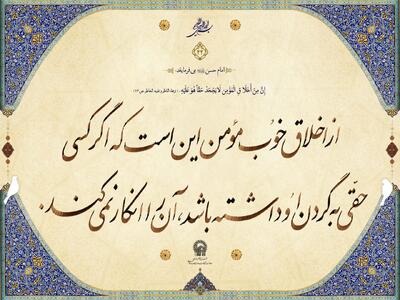 ۴۳
امام حسن می‌فرماید:
إِنَّ مِنْ أَخْلاقِ الْمُؤْمِنِ لا يَجْحَدُ حَقّاً هُوَ عَلَيْهِ
از اخلاق خوب مؤمن این است که اگر کسی
حقّی به گردن او داشته باشد، آن را انکار نمی‌کند.